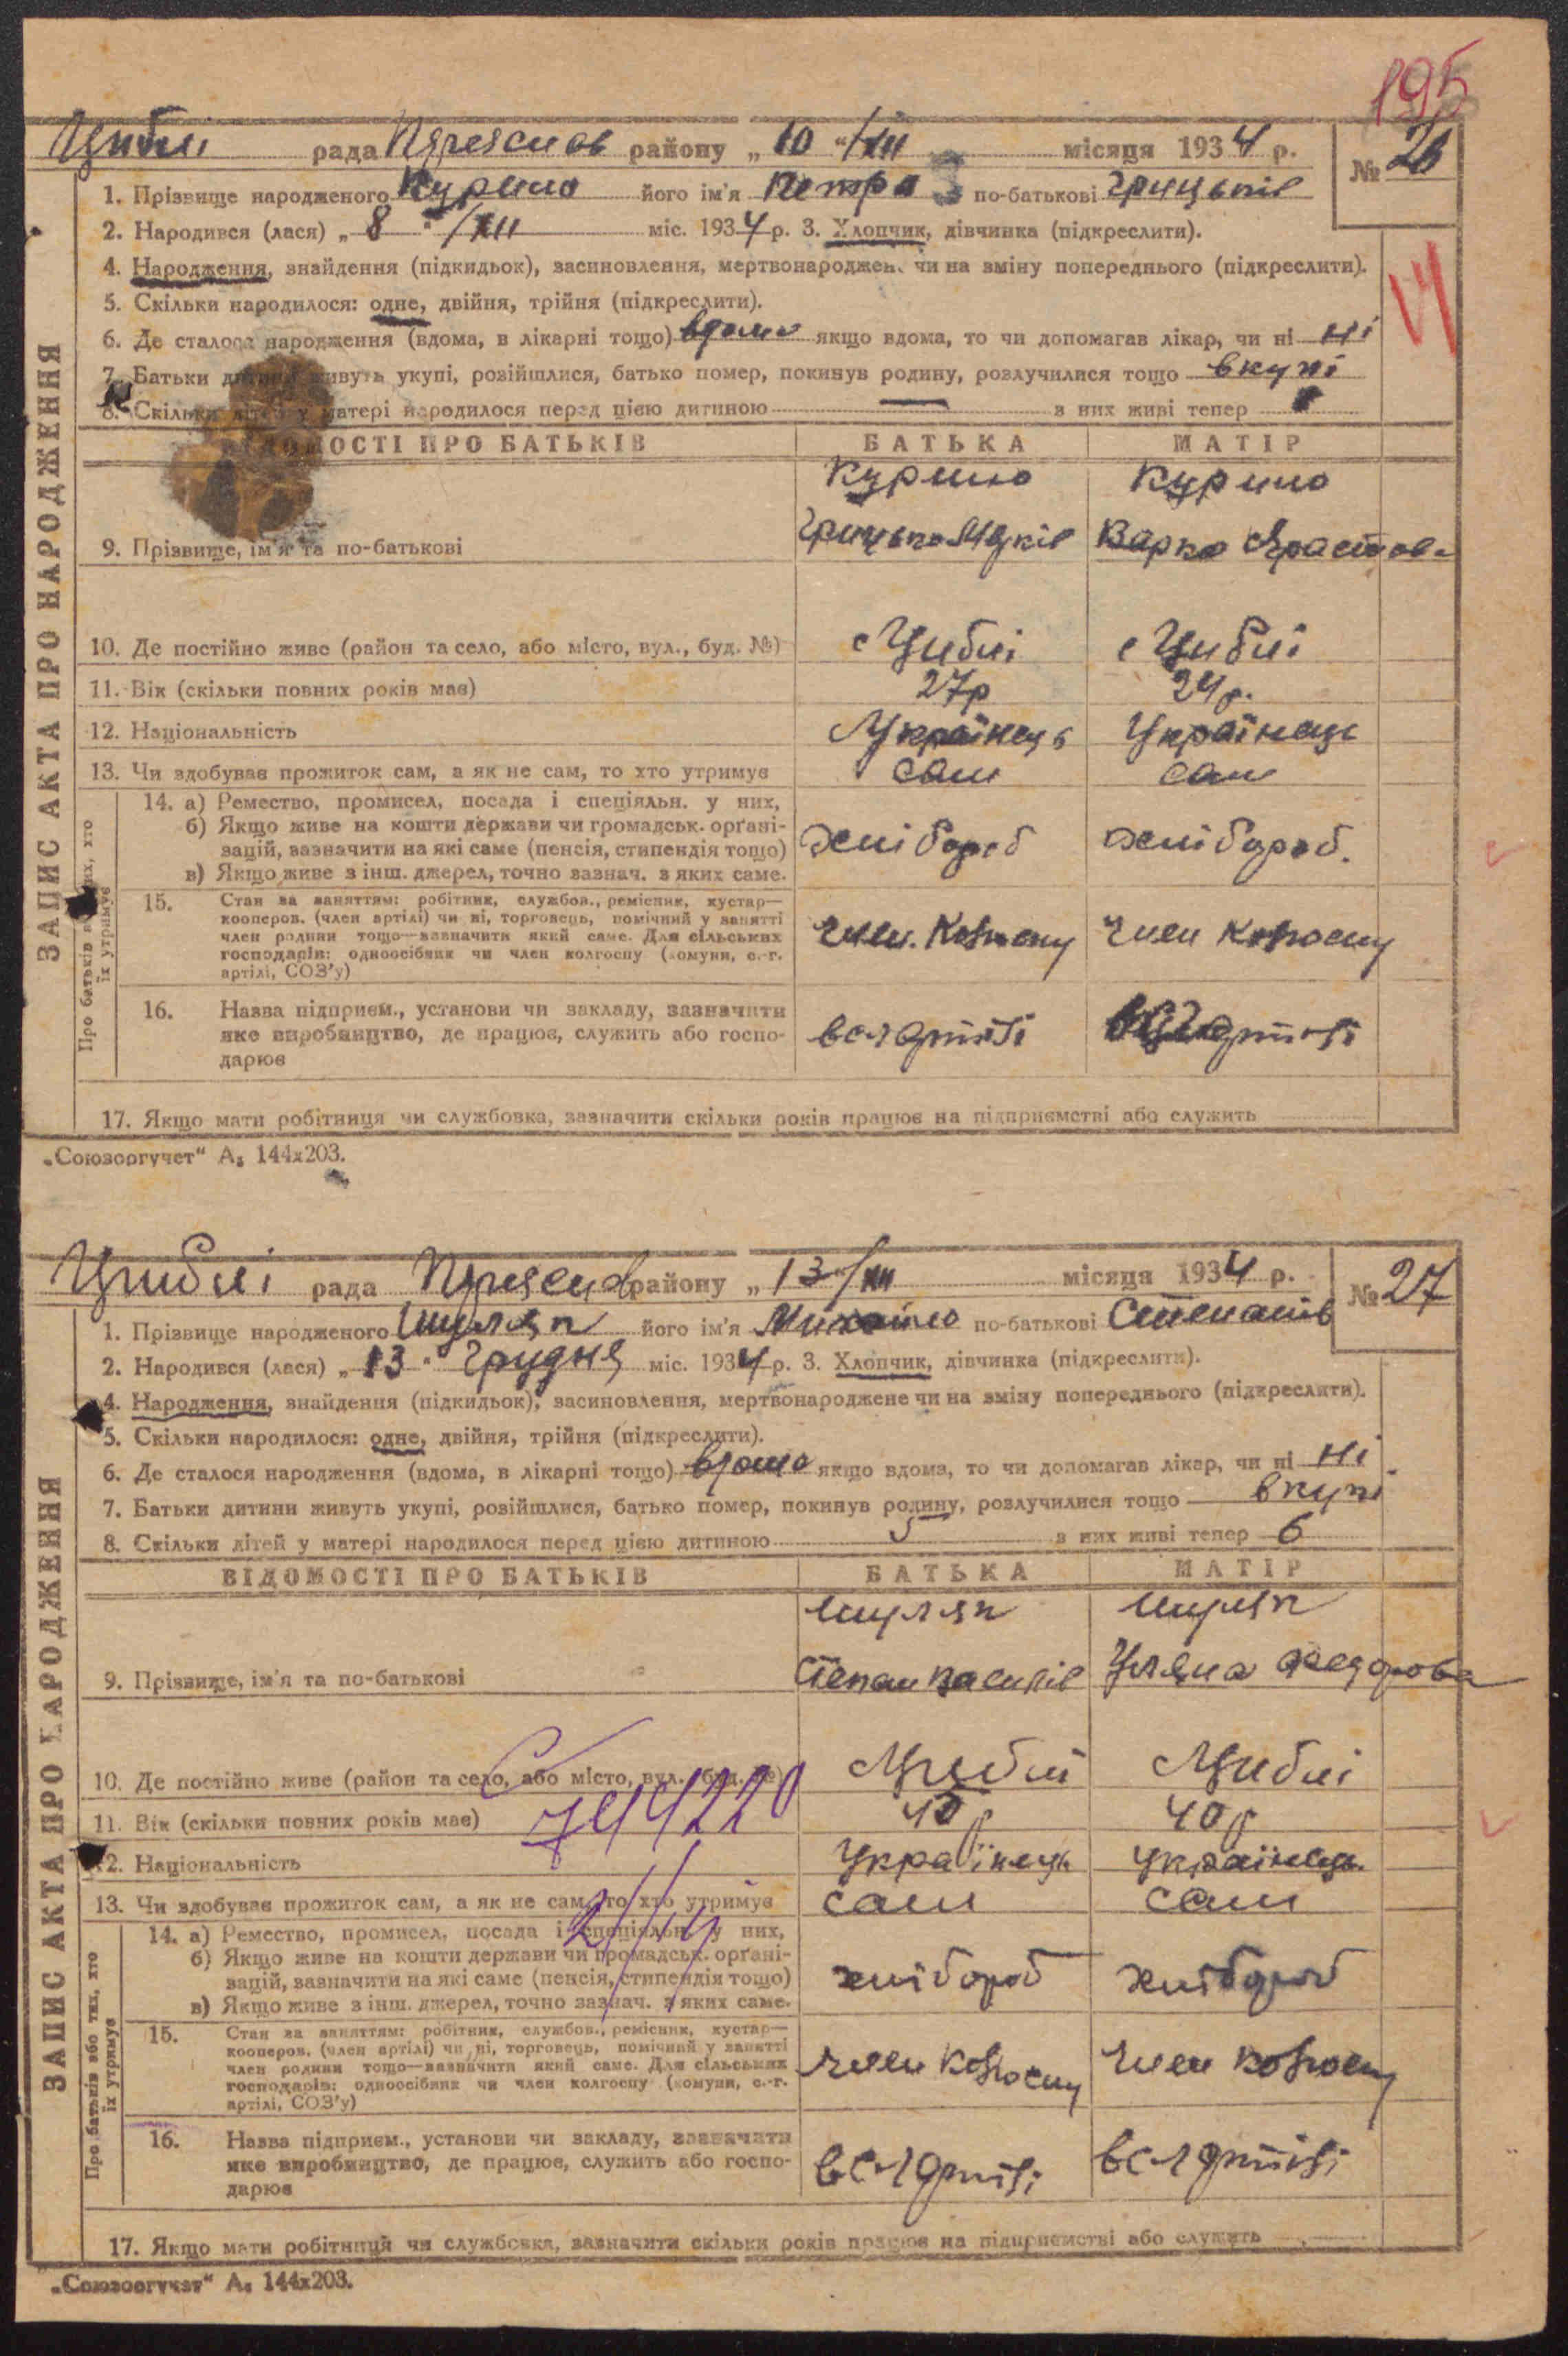 195
Циблі рада Переяслав району „ 10 “ /XII місяця 1934 р. № 26
1. Прізвище народженого Курило його ім'я Петро по-батькові Грицьків
2. Народився (лася) „ 8 " /XII міс. 1934 р. 3. Хлопчик, дівчинка (підкреслити).
4. Народження, знайдення (підкидьок), засиновлення, мертвонароджен. чи на зміну попереднього (підкреслити).
5. Скільки народилося: одне, двійня, трійня (підкреслити).
6. Де сталося народження (вдома, в лікарні тощо) вдома якщо вдома, то чи допомагав лікар, чи ні ні
7. Батьки дитини живуть укупі, розійшлися, батько помер, покинув родину, розлучилися тощо вкупі
8. Скільки дітей у матері народилося перед цією дитиною — з них живі тепер
ВІДОМОСТІ ПРО БАТЬКІВ БАТЬКА МАТІР
Курило Курило
9. Прізвище, ім'я та по-батькові Грицько Варка
10. Де постійно живе (район та село, або місто, вул., буд. №) с Циблі с Циблі
11. Вік (скільки повних років має) 27р 24р.
12. Національність Українець Українець
13. Чи здобуває прожиток сам, а як не сам, то хто утримує сам сам
14. а) Ремество, промисел, посада і спеціяльн. у них,
б) Якщо живе на кошти держави чи громадськ. орґані-
зацій, зазначити на які саме (пенсія, стипендія тощо) хлібороб хлібороб.
в) Якщо живе з інш. джерел, точно зазнач. з яких саме.
15. Стан за заняттям: робітник, службов., ремісник, кустар—
кооперов. (член артілі) чи ні, торговець, помічний у занятті
член родини тощо—зазначити який саме. Для сільських член. Колгоспу член Колгоспу
господарів: одноосібник чи член колгоспу (комуни, с.-г.
артілі, СОЗ'у)
16. Назва підприєм., установи чи закладу, зазначити
яке виробництво, де працює, служить або госпо- в с-г артілі в с-г артілі
дарює
17. Якщо мати робітниця чи службовка, зазначити скільки років працює на підприємстві або служить
ЗАПИС АКТА ПРО НАРОДЖЕННЯ
Про батьків або тих, хто
їх утримує
„Союзоргучет“ А₅ 144x203.
Циблі рада Переяслав району „ 13 “ /XII місяця 1934 р. № 27
1. Прізвище народженого Шуляк його ім'я Михайло по-батькові Степанів
2. Народився (лася) „ 13 " Грудня міс. 1934 р. 3. Хлопчик, дівчинка (підкреслити).
4. Народження, знайдення (підкидьок), засиновлення, мертвонароджене чи на зміну попереднього (підкреслити).
5. Скільки народилося: одне, двійня, трійня (підкреслити).
6. Де сталося народження (вдома, в лікарні тощо) вдома якщо вдома, то чи допомагав лікар, чи ні ні
7. Батьки дитини живуть укупі, розійшлися, батько помер, покинув родину, розлучилися тощо вкупі
8. Скільки дітей у матері народилося перед цією дитиною 5 з них живі тепер 6
ВІДОМОСТІ ПРО БАТЬКІВ БАТЬКА МАТІР
Шуляк Шуляк
9. Прізвище, ім'я та по-батькові Степан Василів Уляна Федорова
10. Де постійно живе (район та село, або місто, вул., буд. №) Циблі Циблі
11. Вік (скільки повних років має) 40р 40р
12. Національність Українець Українець.
13. Чи здобуває прожиток сам, а як не сам, то хто утримує сам сам
14. а) Ремество, промисел, посада і спеціяльн. у них,
б) Якщо живе на кошти держави чи громадськ. орґані-
зацій, зазначити на які саме (пенсія, стипендія тощо) хлібороб хлібороб
в) Якщо живе з інш. джерел, точно зазнач. з яких саме.
15. Стан за заняттям: робітник, службов., ремісник, кустар—
кооперов. (член артілі) чи ні, торговець, помічний у занятті
член родини тощо—зазначити який саме. Для сільських член Колгоспу член колгоспу
господарів: одноосібник чи член колгоспу (комуни, с.-г.
артілі, СОЗ'у)
16. Назва підприєм., установи чи закладу, зазначити
яке виробництво, де працює, служить або госпо- в с-г артілі в с-г артілі
дарює
17. Якщо мати робітниця чи службовка, зазначити скільки років працює на підприємстві або служить
ЗАПИС АКТА ПРО НАРОДЖЕННЯ
Про батьків або тих, хто
їх утримує
„Союзоргучет“ А₅ 144x203.